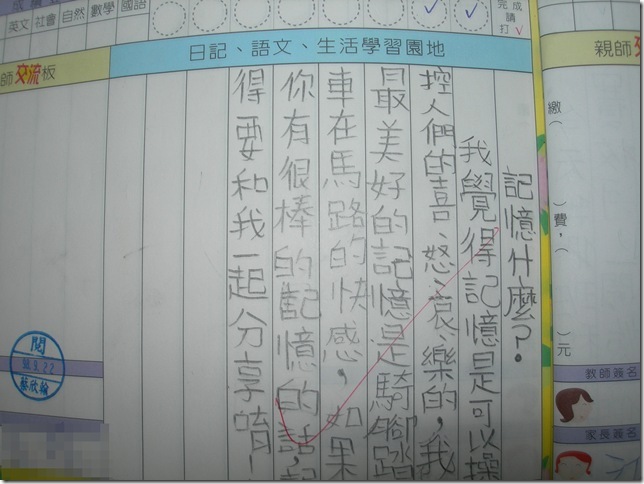 成績
英文 社會 自然 數學 國語
完成請打✓
日記、語文、生活學習園地
師交流板
記憶什麼?。
我覺得記憶是可以操
控人們的喜、怒、哀、樂的,我
最美好的記憶是騎腳踏
車在馬路的快感,如果
你有很棒的記憶的話,
得要和我一起分享唷!
閱
親師
繳( )費,( )元
教師簽名
家長簽名